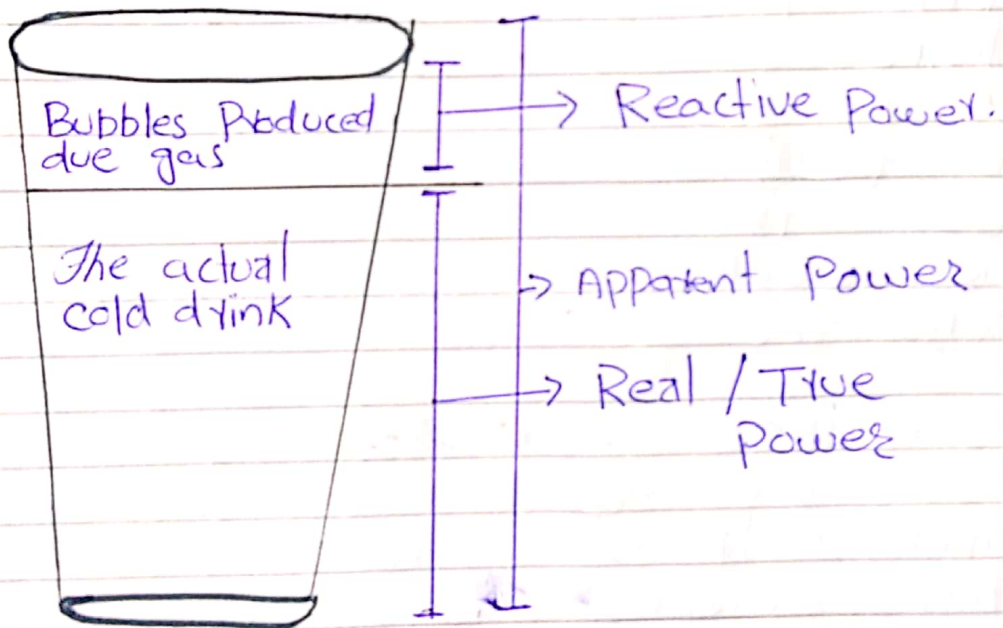 Bubbles Produced
due gas
Reactive Power.
The actual
cold drink
Apparent Power
Real / True
Power